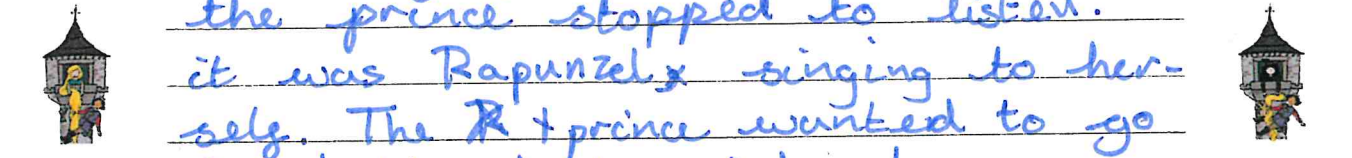 the prince stopped to listen.
it was Rapunzel singing to her-
self. The prince wanted to go